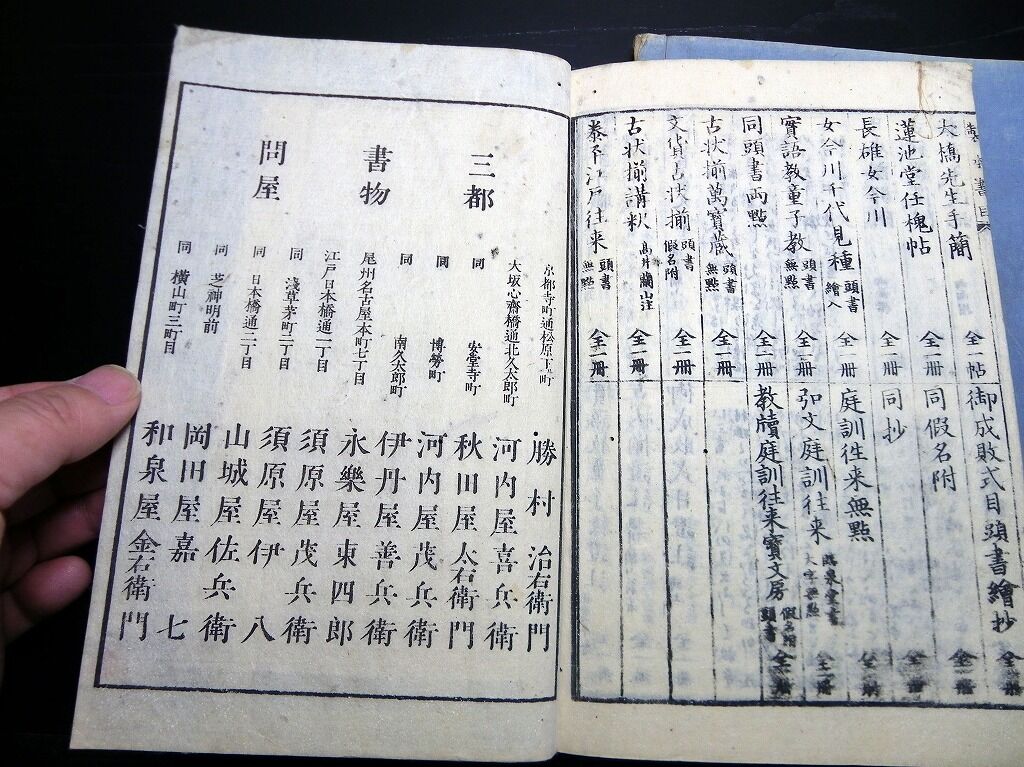 大橋先生手簡 全一帖
蓮池堂任槐帖 全一冊
長雄女今川 全一冊
女今川千代見種 頭書繪入 全一冊
實語教童子教 頭書無點 全一冊
同頭書両點 全一冊
古状揃萬寶蔵 頭書無點 全一冊
文貨古状揃 頭書假名附 全一冊
古状揃講釈 高井蘭山注 全一冊
泰平江戸往来 頭書無點 全一冊
御成敗式目頭書繪抄 全一冊
同假名附 全一冊
同抄 全一冊
庭訓往来無點 全一冊
弘文庭訓往来 全一冊
教牘庭訓往来寶文房 假名附頭書 全一冊
三都
書物
問屋
京都寺町通松原下ル町 勝村治右衛門
大坂心齋橋通北久太郎町 河内屋喜兵衛
同 安堂寺町 秋田屋太右衛門
同 博勞町 河内屋茂兵衛
同 南久太郎町 伊丹屋善兵衛
尾州名古屋本町七丁目 永樂屋東四郎
江戸日本橋通一丁目 須原屋茂兵衛
同 淺草茅町二丁目 須原屋伊八
同 日本橋通二丁目 山城屋佐兵衛
同 芝神明前 岡田屋嘉七
同 横山町三町目 和泉屋金右衛門